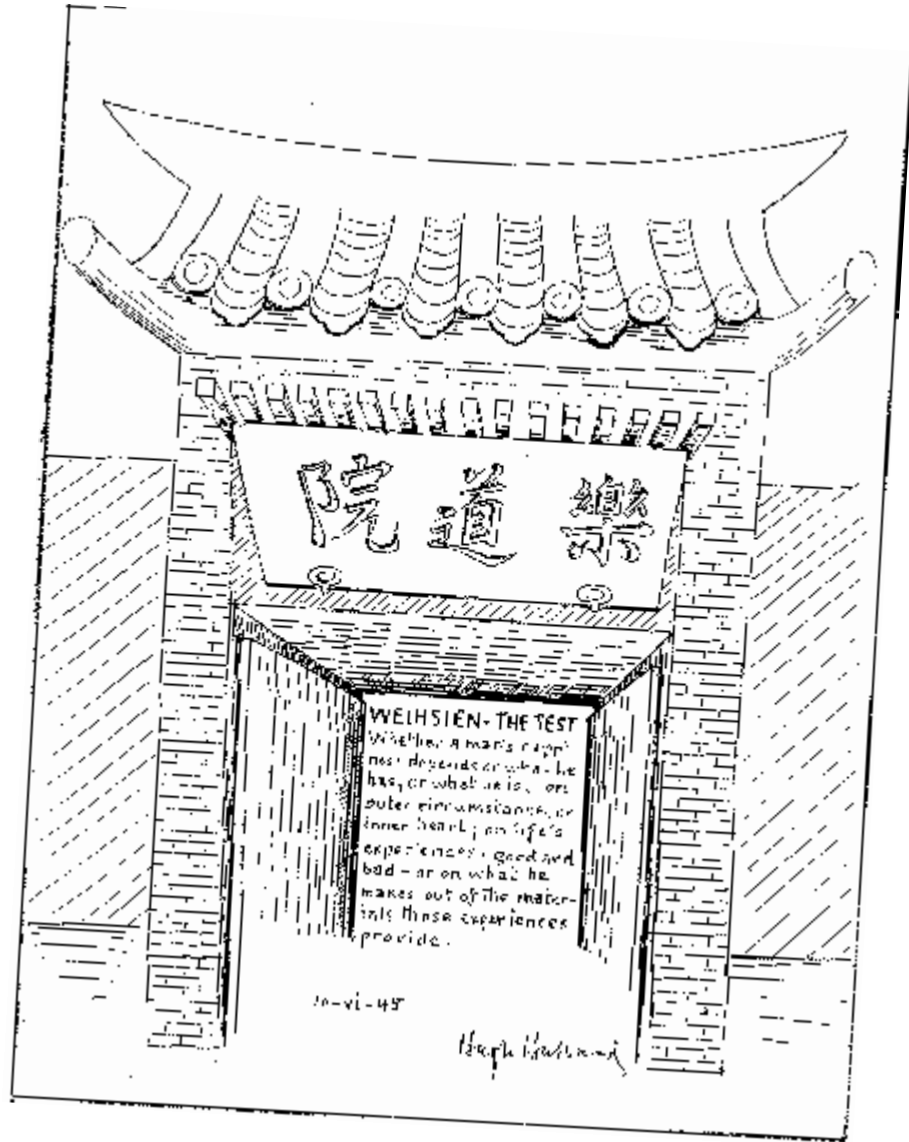 樂道院
WEIHSIEN - THE TEST
Whether a man's happi-
ness depends on what he
has, or what he is; on
outer circumstance, or
inner heart; on life's
experiences, good and
bad - or on what he
makes out of the mater-
ials those experiences
provide.
-vi-45
Hugh Hubbard